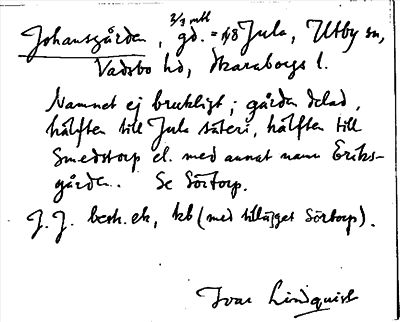 Johansgården, 3/8 mtl gd. = 1/8 Jula, Utby sn,
Vadsbo hd, Skaraborgs l.
Namnet ej brukligt; gården delad,
hälften till Jula säteri, hälften till
Smedstorp el. med annat namn Eriks-
gården. Se Sörtorp.
J. J. besk. ek, kb (med tillägget Sörtorp).
Ivar Lindquist